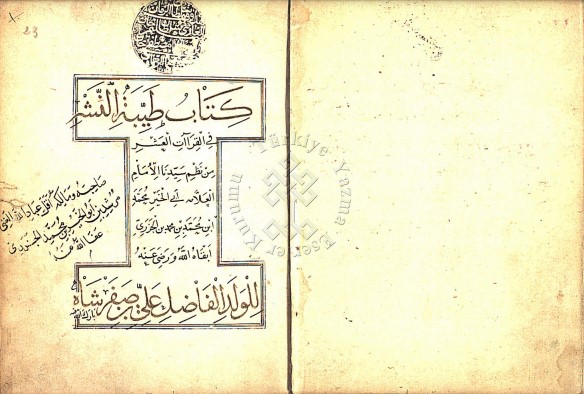 23
كتاب طيبة النشر
في القراات العشر
من نظم سيدنا الامام
العلامة ابي الخير محمد
ابن محمد بن محمد بن الجزري
ابقاه الله ورضي عنه
للولد الفاضل علي بن صفر شاه
صاحبه ومالكه اقل عباد الله الغني
محمد الجزري
عفا الله عنهما
Türkiye Yazma Eser Kurumu